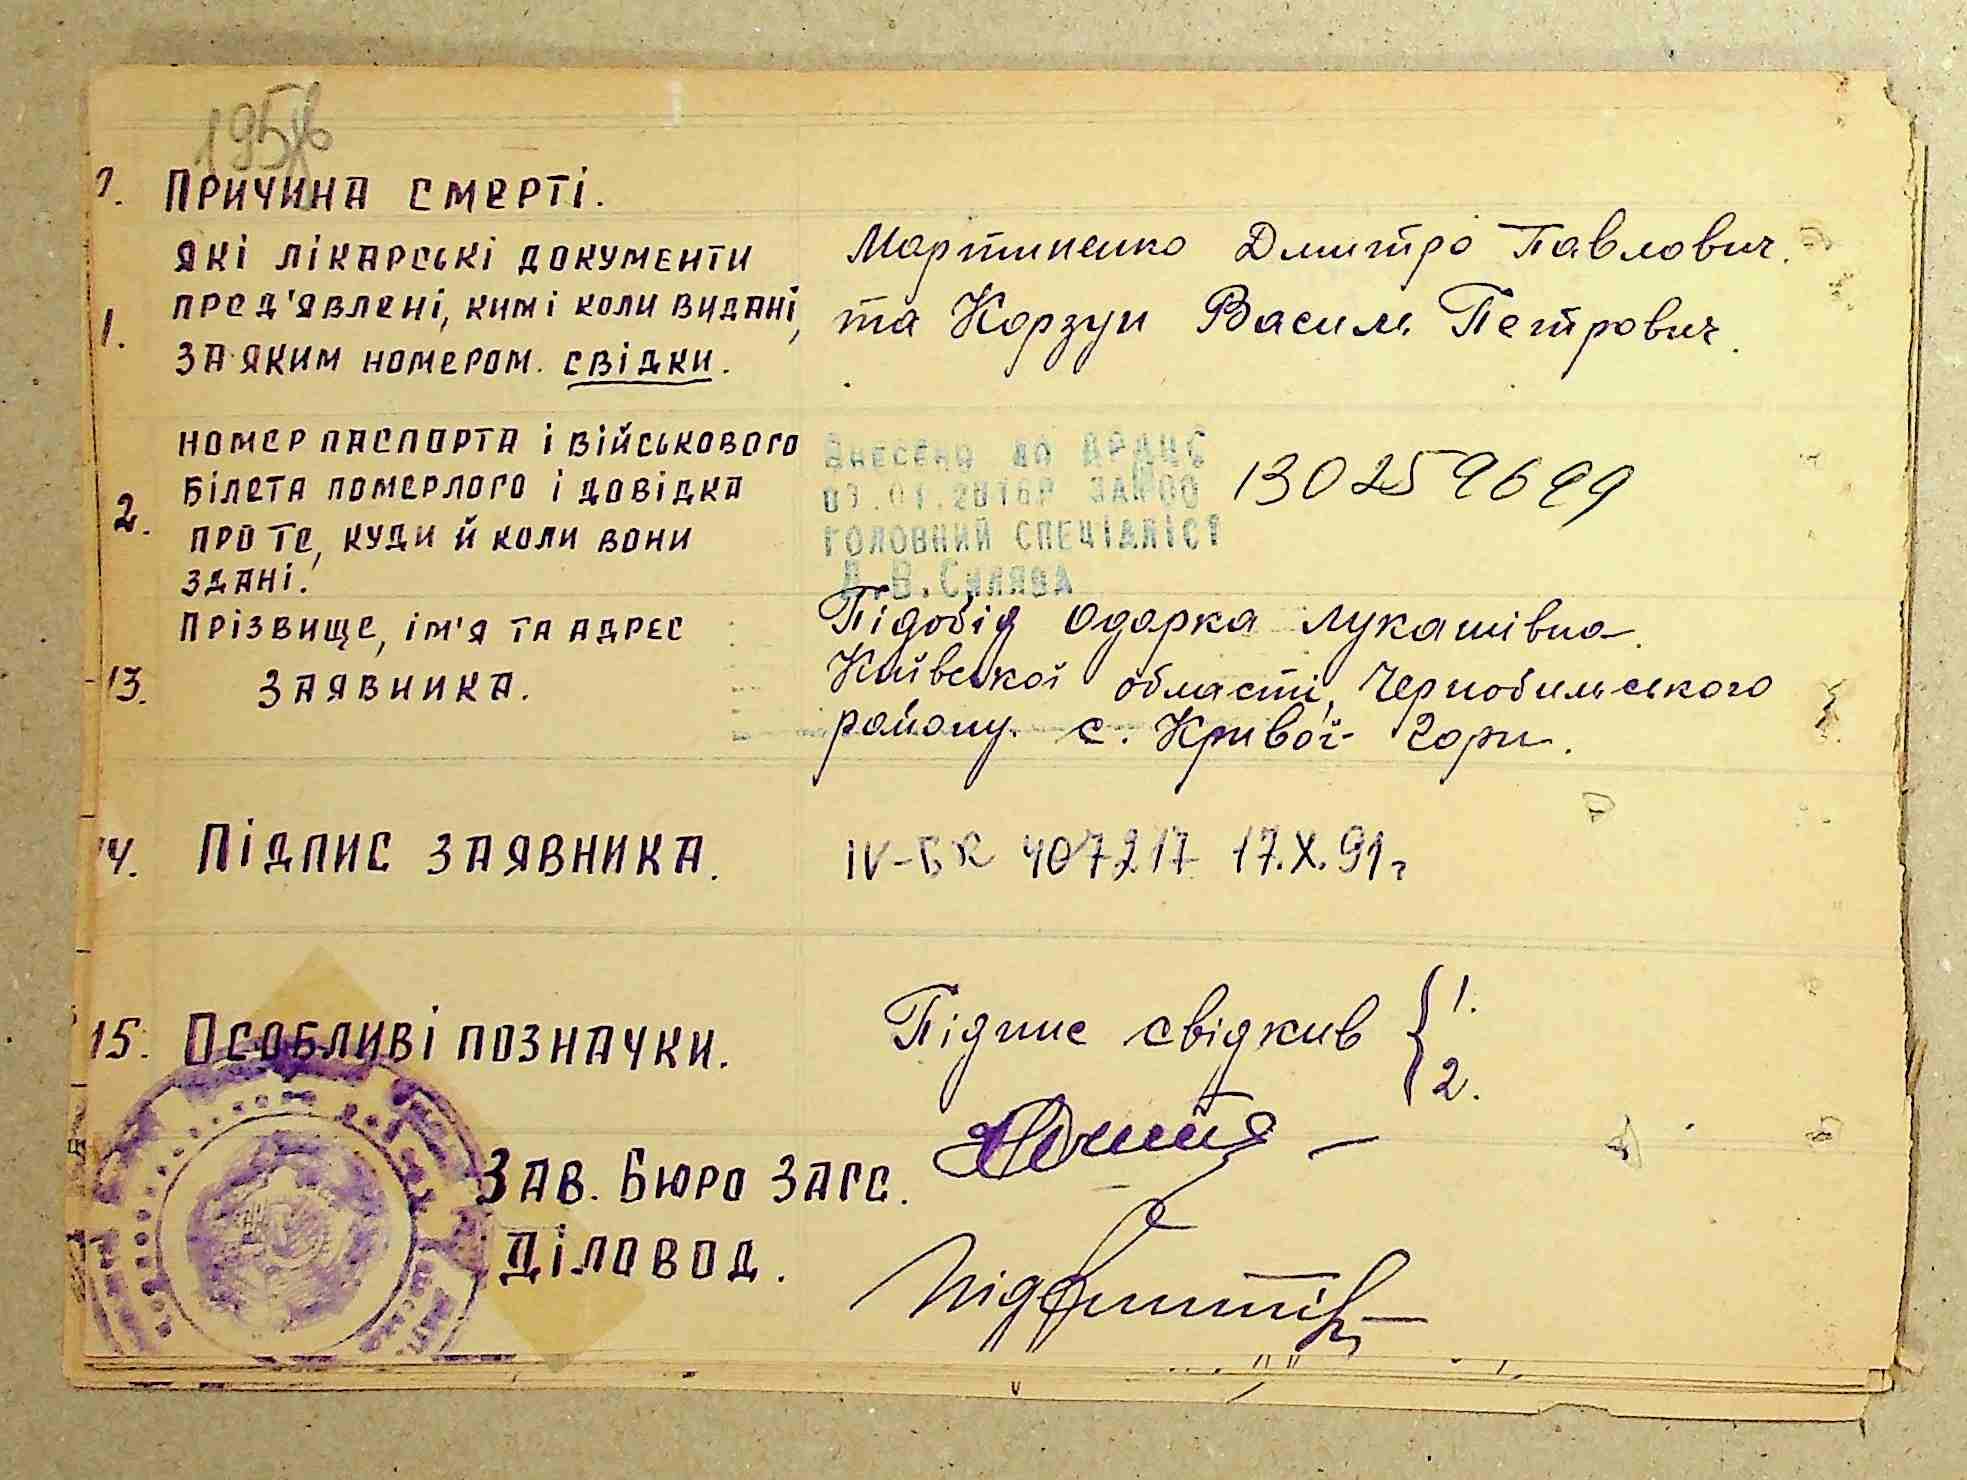 195
Причина смерті.
Які лікарські документи
пред'явлені, ким і коли видані,
1. за яким номером. свідки.
Мартиненко Дмитро Павлович.
та Корзун Василь Петрович.
номер паспорта і військового
2. білета померлого і довідка
про те, куди й коли вони
здані.
Внесено до ДРАЦС
ГОЛОВНИЙ СПЕЦІАЛІСТ
130259699
Прізвище, ім'я та адрес
13. заявника.
Підобід Одарка Лукашівна.
Київської області, Чернобильського
району. с. Кривої Гори.
14. Підпис заявника.
IV-БК 407217 17.X.91г
15. Особливі позначки.
Підпис свідків { 1.
2.
Зав. Бюро ЗАГС.
Діловод.